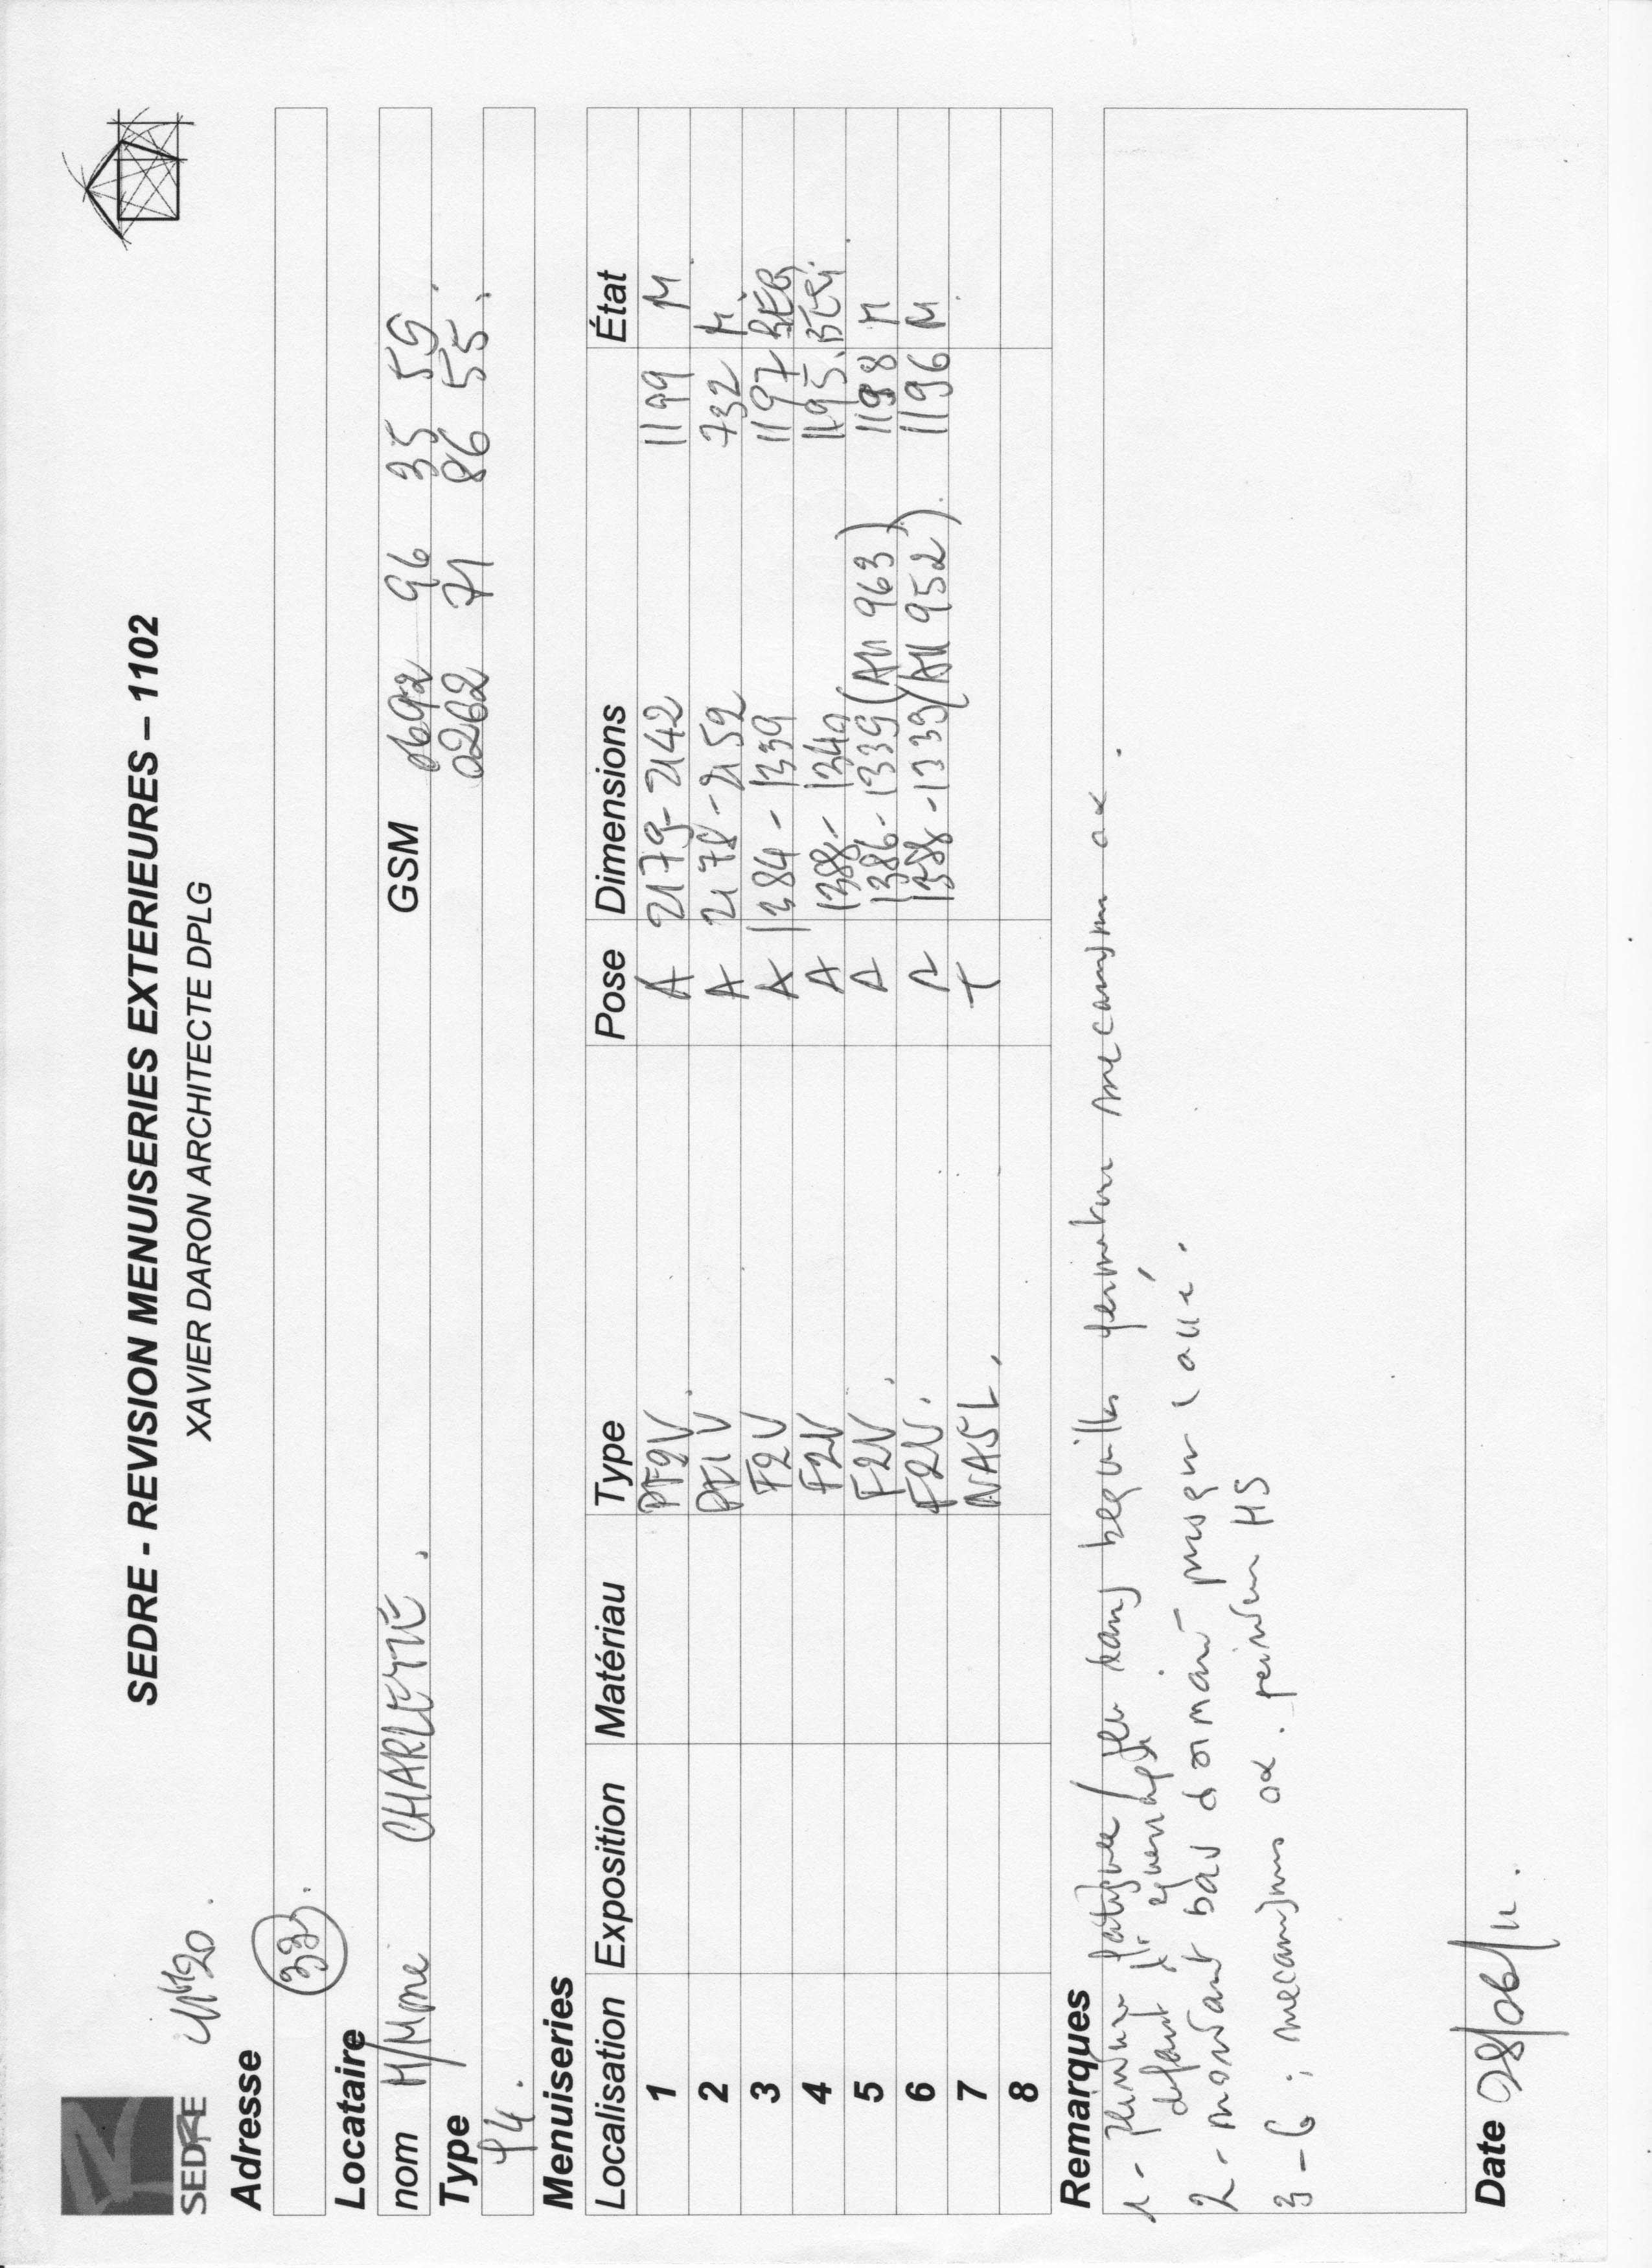 SEDRE - REVISION MENUISERIES EXTERIEURES – 1102
XAVIER DARON ARCHITECTE DPLG
SEDRE
Adresse
33
Locataire
nom M/Mme CHARLETTE. GSM 0692 96 35 59
Type 0262 71 86 55
Menuiseries
Localisation Exposition Matériau Type Pose Dimensions État
1 PF2V A 2179-2142 1199 M
2 PF1V A 2178-2152 732 M
3 F2V A 1384-1339 1197
4 F2V A 1388-1349 1195
5 F2V A 1386-1339 (All 963) 1198 M
6 F2V. A 1388-1339 (All 952) 1196 M
7 NA5L. T
8
Remarques
1 - fatiguée / jeu dans bequilles fermeture mecanism ok.
defaut
2 - montant bas dormant
3 - 6 : mecanismes ok. peinture HS
Date 28/06/11.